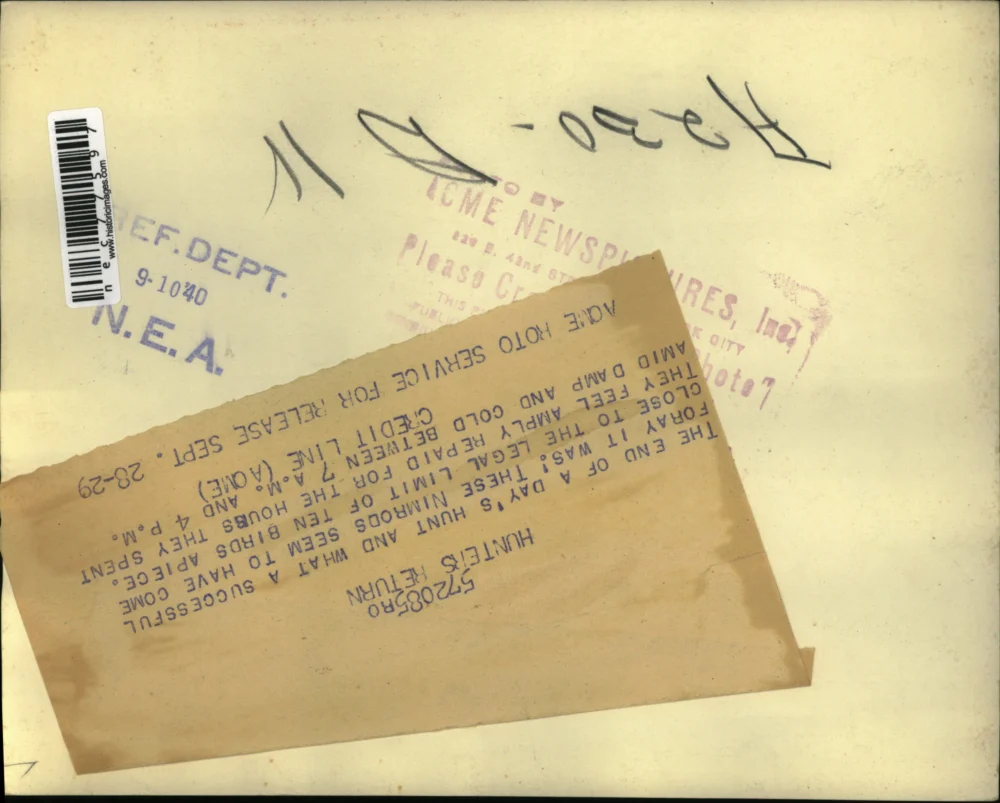 www.historicimages.com
REF. DEPT.
9-1040
N.E.A.
ACME NEWSPI URES, Inc.
Please Cr
THIS
CITY
572085RO
HUNTERS RETURN
THE END OF A DAY'S HUNT AND WHAT A SUCCESSFUL
FORAY IT WAS! THESE NIMRODS SEEM TO HAVE COME
CLOSE TO THE LEGAL LIMIT OF TEN BIRDS APIECE.
THEY FEEL AMPLY REPAID FOR THE HOURS THEY SPENT
AMID DAMP AND COLD BETWEEN 7 A.M. AND 4 P.M.
CREDIT LINE (ACME)
ACME HOTO SERVICE FOR RELEASE SEPT. 28-29